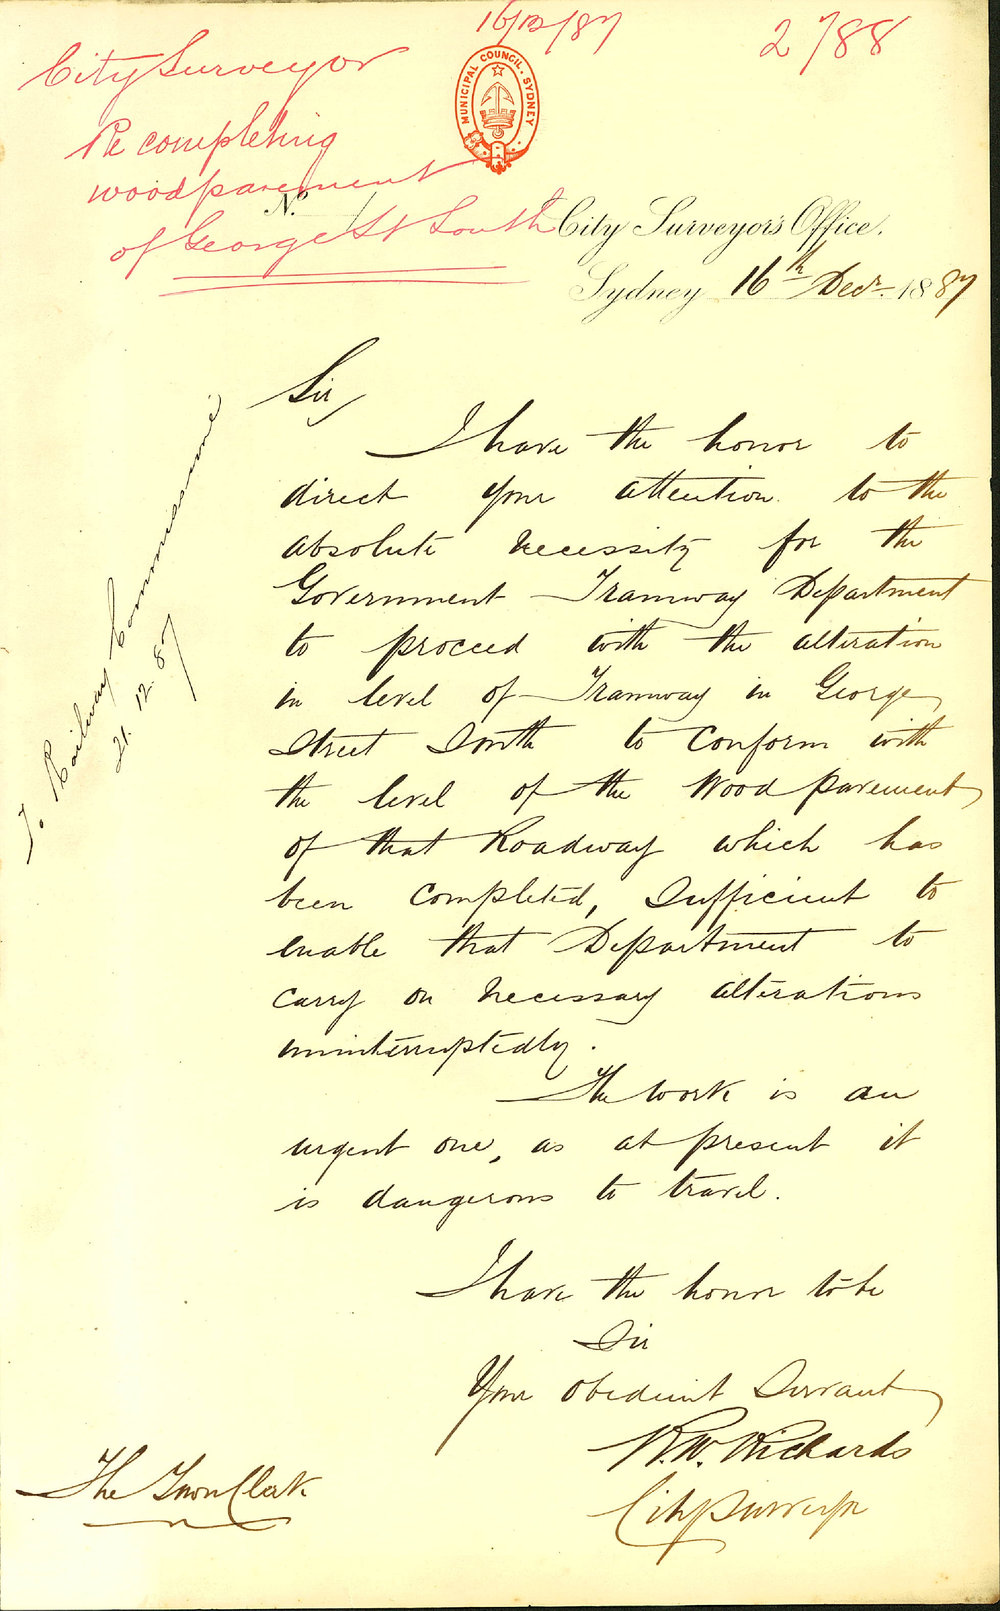 16/12/87
2/88
City Surveyor
Re completing
woodpavement
of George St South
MUNICIPAL COUNCIL. SYDNEY
No.
City Surveyor's Office.
Sydney 16th Decr. 1887
To Railway Commissioner
21.12.87
Sir,
I have the honor to
direct your attention to the
absolute necessity for the
Government Tramway Department
to proceed with the alteration
in level of Tramway in George
Street South to conform with
the level of the Wood pavement
of that Roadway which has
been completed, sufficient to
enable that Department to
carry on necessary alterations
uninterruptedly.
The work is an
urgent one, as at present it
is dangerous to travel.
I have the honor to be
Sir
Your obedient Servant
R.W. Richards
City Surveyor
The Town Clerk